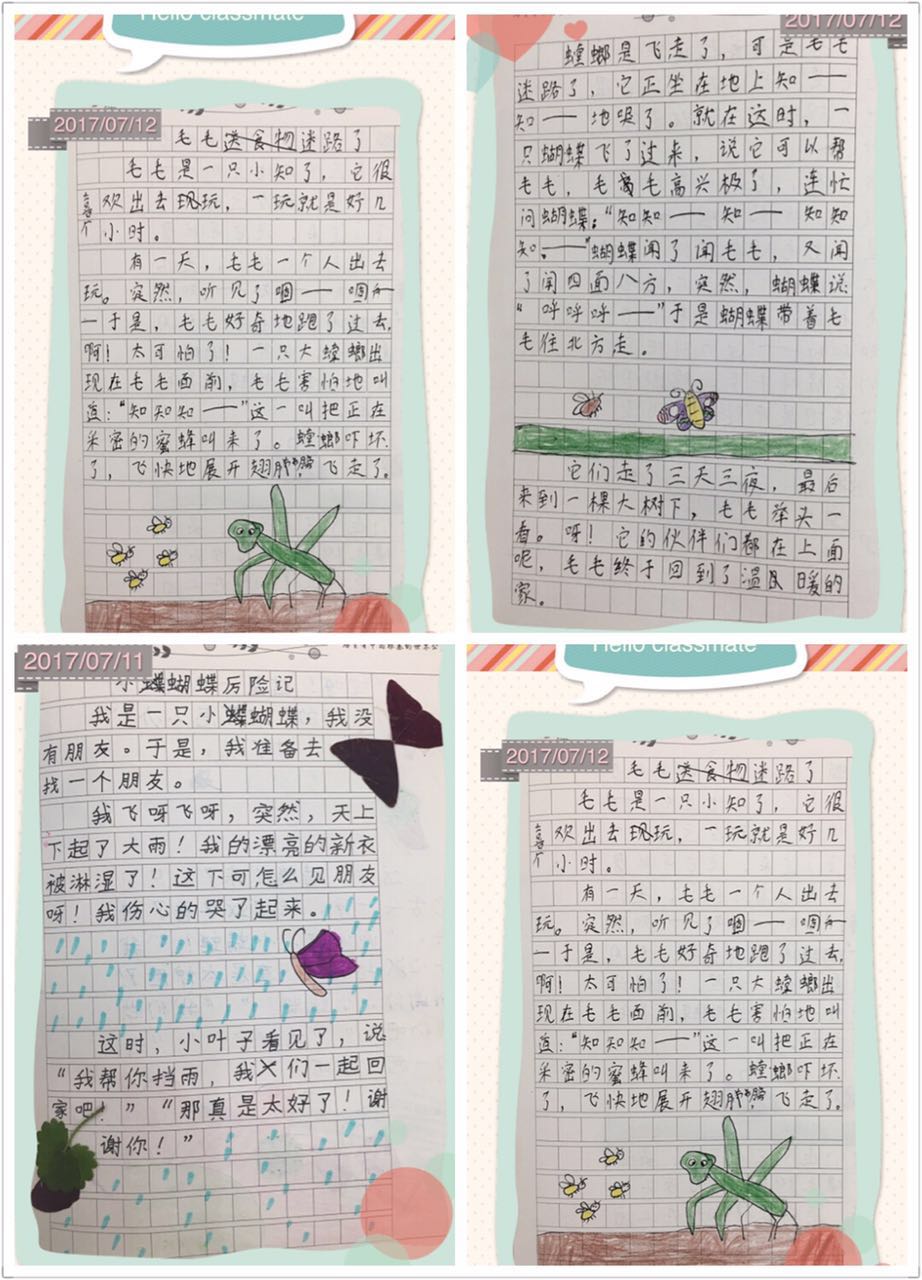 Hello classmate
2017/07/12
毛毛送食物迷路了
毛毛是一只小知了，它很
喜欢出去现玩，一玩就是好几
个小时。
有一天，毛毛一个人出去
玩。突然，听见了咽——咽
一于是，毛毛好奇地跑了过去，
啊！太可怕了！一只大螳螂出
现在毛毛面前，毛毛害怕地叫
道：“知知知——”这一叫把正在
采密的蜜蜂叫来了。螳螂吓坏
了，飞快地展开翅膀，飞走了。
2017/07/12
螳螂是飞走了，可是毛毛
迷路了，它正坐在地上知——
知——地哭了。就在这时，一
只蝴蝶飞了过来，说它可以帮
毛毛，毛毛高兴极了，连忙
问蝴蝶：“知知——知——知知
知——”蝴蝶闻了闻毛毛，又闻
了闻四面八方，突然，蝴蝶说：
“呼呼呼——”于是蝴蝶带着毛
毛往北方走。
它们走了三天三夜，最后
来到一棵大树下，毛毛举头一
看。呀！它的伙伴们都在上面
呢，毛毛终于回到了温暖的
家。
2017/07/11
小蝴蝶厉险记
我是一只小蝴蝶，我没
有朋友。于是，我准备去
找一个朋友。
我飞呀飞呀，突然，天上
下起了大雨！我的漂亮的新衣
被淋湿了！这下可怎么见朋友
呀！我伤心的哭了起来。
这时，小叶子看见了，说
“我帮你挡雨，我们一起回
家吧！”“那真是太好了！谢
谢你！”
Hello classmate
2017/07/12
毛毛送食物迷路了
毛毛是一只小知了，它很
喜欢出去现玩，一玩就是好几
个小时。
有一天，毛毛一个人出去
玩。突然，听见了咽——咽
一于是，毛毛好奇地跑了过去，
啊！太可怕了！一只大螳螂出
现在毛毛面前，毛毛害怕地叫
道：“知知知——”这一叫把正在
采密的蜜蜂叫来了。螳螂吓坏
了，飞快地展开翅膀，飞走了。